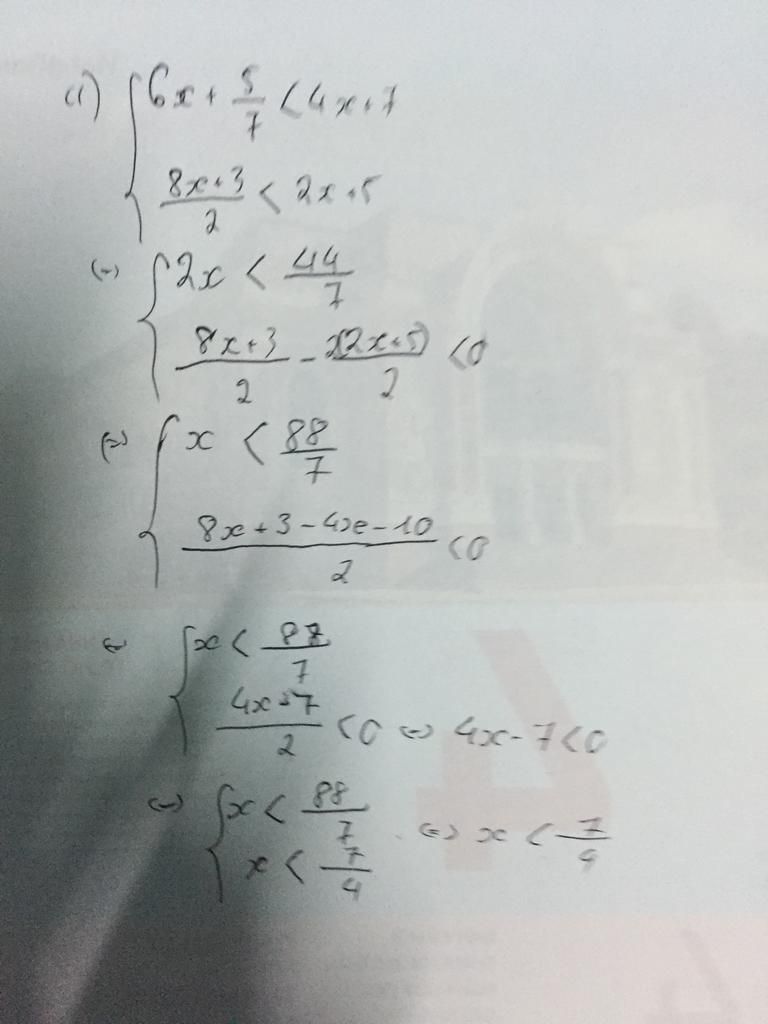 (1) { 6x + 5/7 < 4x+7
(8x+3)/2 < 2x+5
(=) { 2x < 44/7
(8x+3)/2 - 2(2x+5)/2 < 0
(=) { x < 88/7
(8x+3-4x-10)/2 < 0
(=) { x < 88/7
(4x-7)/2 < 0 (=) 4x-7 < 0
(=) { x < 88/7
x < 7/4 (=) x < 7/4